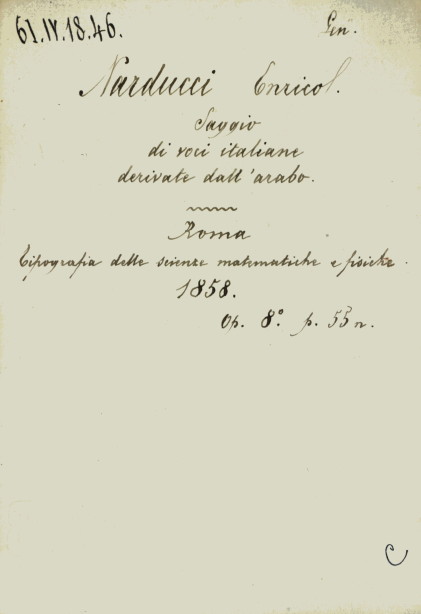 61.IV.18.46.
Gen.
Narducci Enrico.
Saggio
di voci italiane
derivate dall'arabo.
Roma
Tipografia delle scienze matematiche e fisiche.
1858.
Op. 8° p. 55 n.
C